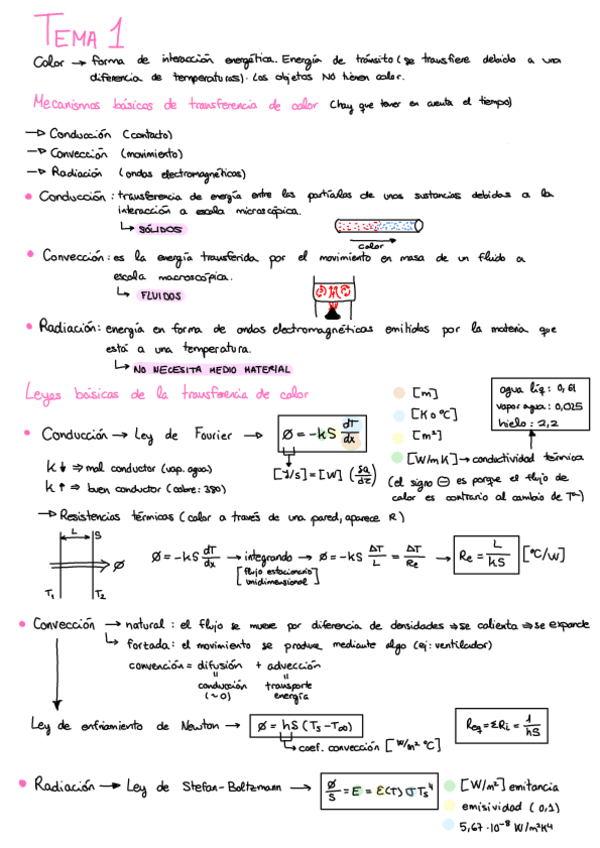 TEMA 1
Calor → forma de interacción energética. Energía de tránsito (se transfiere debido a una
diferencia de temperaturas). Los objetos NO tienen calor.
Mecanismos básicos de transferencia de calor (hay que tener en cuenta el tiempo)
→ Conducción (contacto)
→ Convección (movimiento)
→ Radiación (ondas electromagnéticas)
• Conducción: transferencia de energía entre las partículas de unas sustancias debidas a la
interacción a escala microscópica.
↳ SÓLIDOS
calor
• Convección: es la energía transferida por el movimiento en masa de un fluido a
escala macroscópica.
↳ FLUIDOS
• Radiación: energía en forma de ondas electromagnéticas emitidas por la materia que
está a una temperatura.
↳ NO NECESITA MEDIO MATERIAL
Leyes básicas de la transferencia de calor
[m]
[K o °C]
[m²]
[W/mK] → conductividad térmica
agua líq: 0,61
vapor agua: 0,025
hielo: 2,2
• Conducción → Ley de Fourier → Ø = -kS dT/dx
[J/s] = [W]
(el signo ⊖ es porque el flujo de
calor es contrario al cambio de Tª)
k ↓ ⇒ mal conductor (vap. agua)
k ↑ ⇒ buen conductor (cobre: 380)
→ Resistencias térmicas (calor a través de una pared, aparece R)
L S
Ø
T₁ T₂
Ø = -kS dT/dx → integrando → Ø = -kS ΔT/L = ΔT/Re → Re = L/kS [°C/W]
[flujo estacionario
unidimensional]
• Convección → natural: el flujo se mueve por diferencia de densidades ⇒ se calienta ⇒ se expande
↳ forzada: el movimiento se produce mediante algo (ej: ventilador)
convención = difusión + advección
conducción transporte
(~0) energía
Ley de enfriamiento de Newton → Ø = hS (Ts - T∞)
↳ coef. convección [W/m² °C]
Req = ΣRi = 1/hS
• Radiación → Ley de Stefan-Boltzmann → Ø/S = E = ε(T) σ Ts⁴
[W/m²] emitancia
emisividad (0,1)
5,67·10⁻⁸ W/m²K⁴